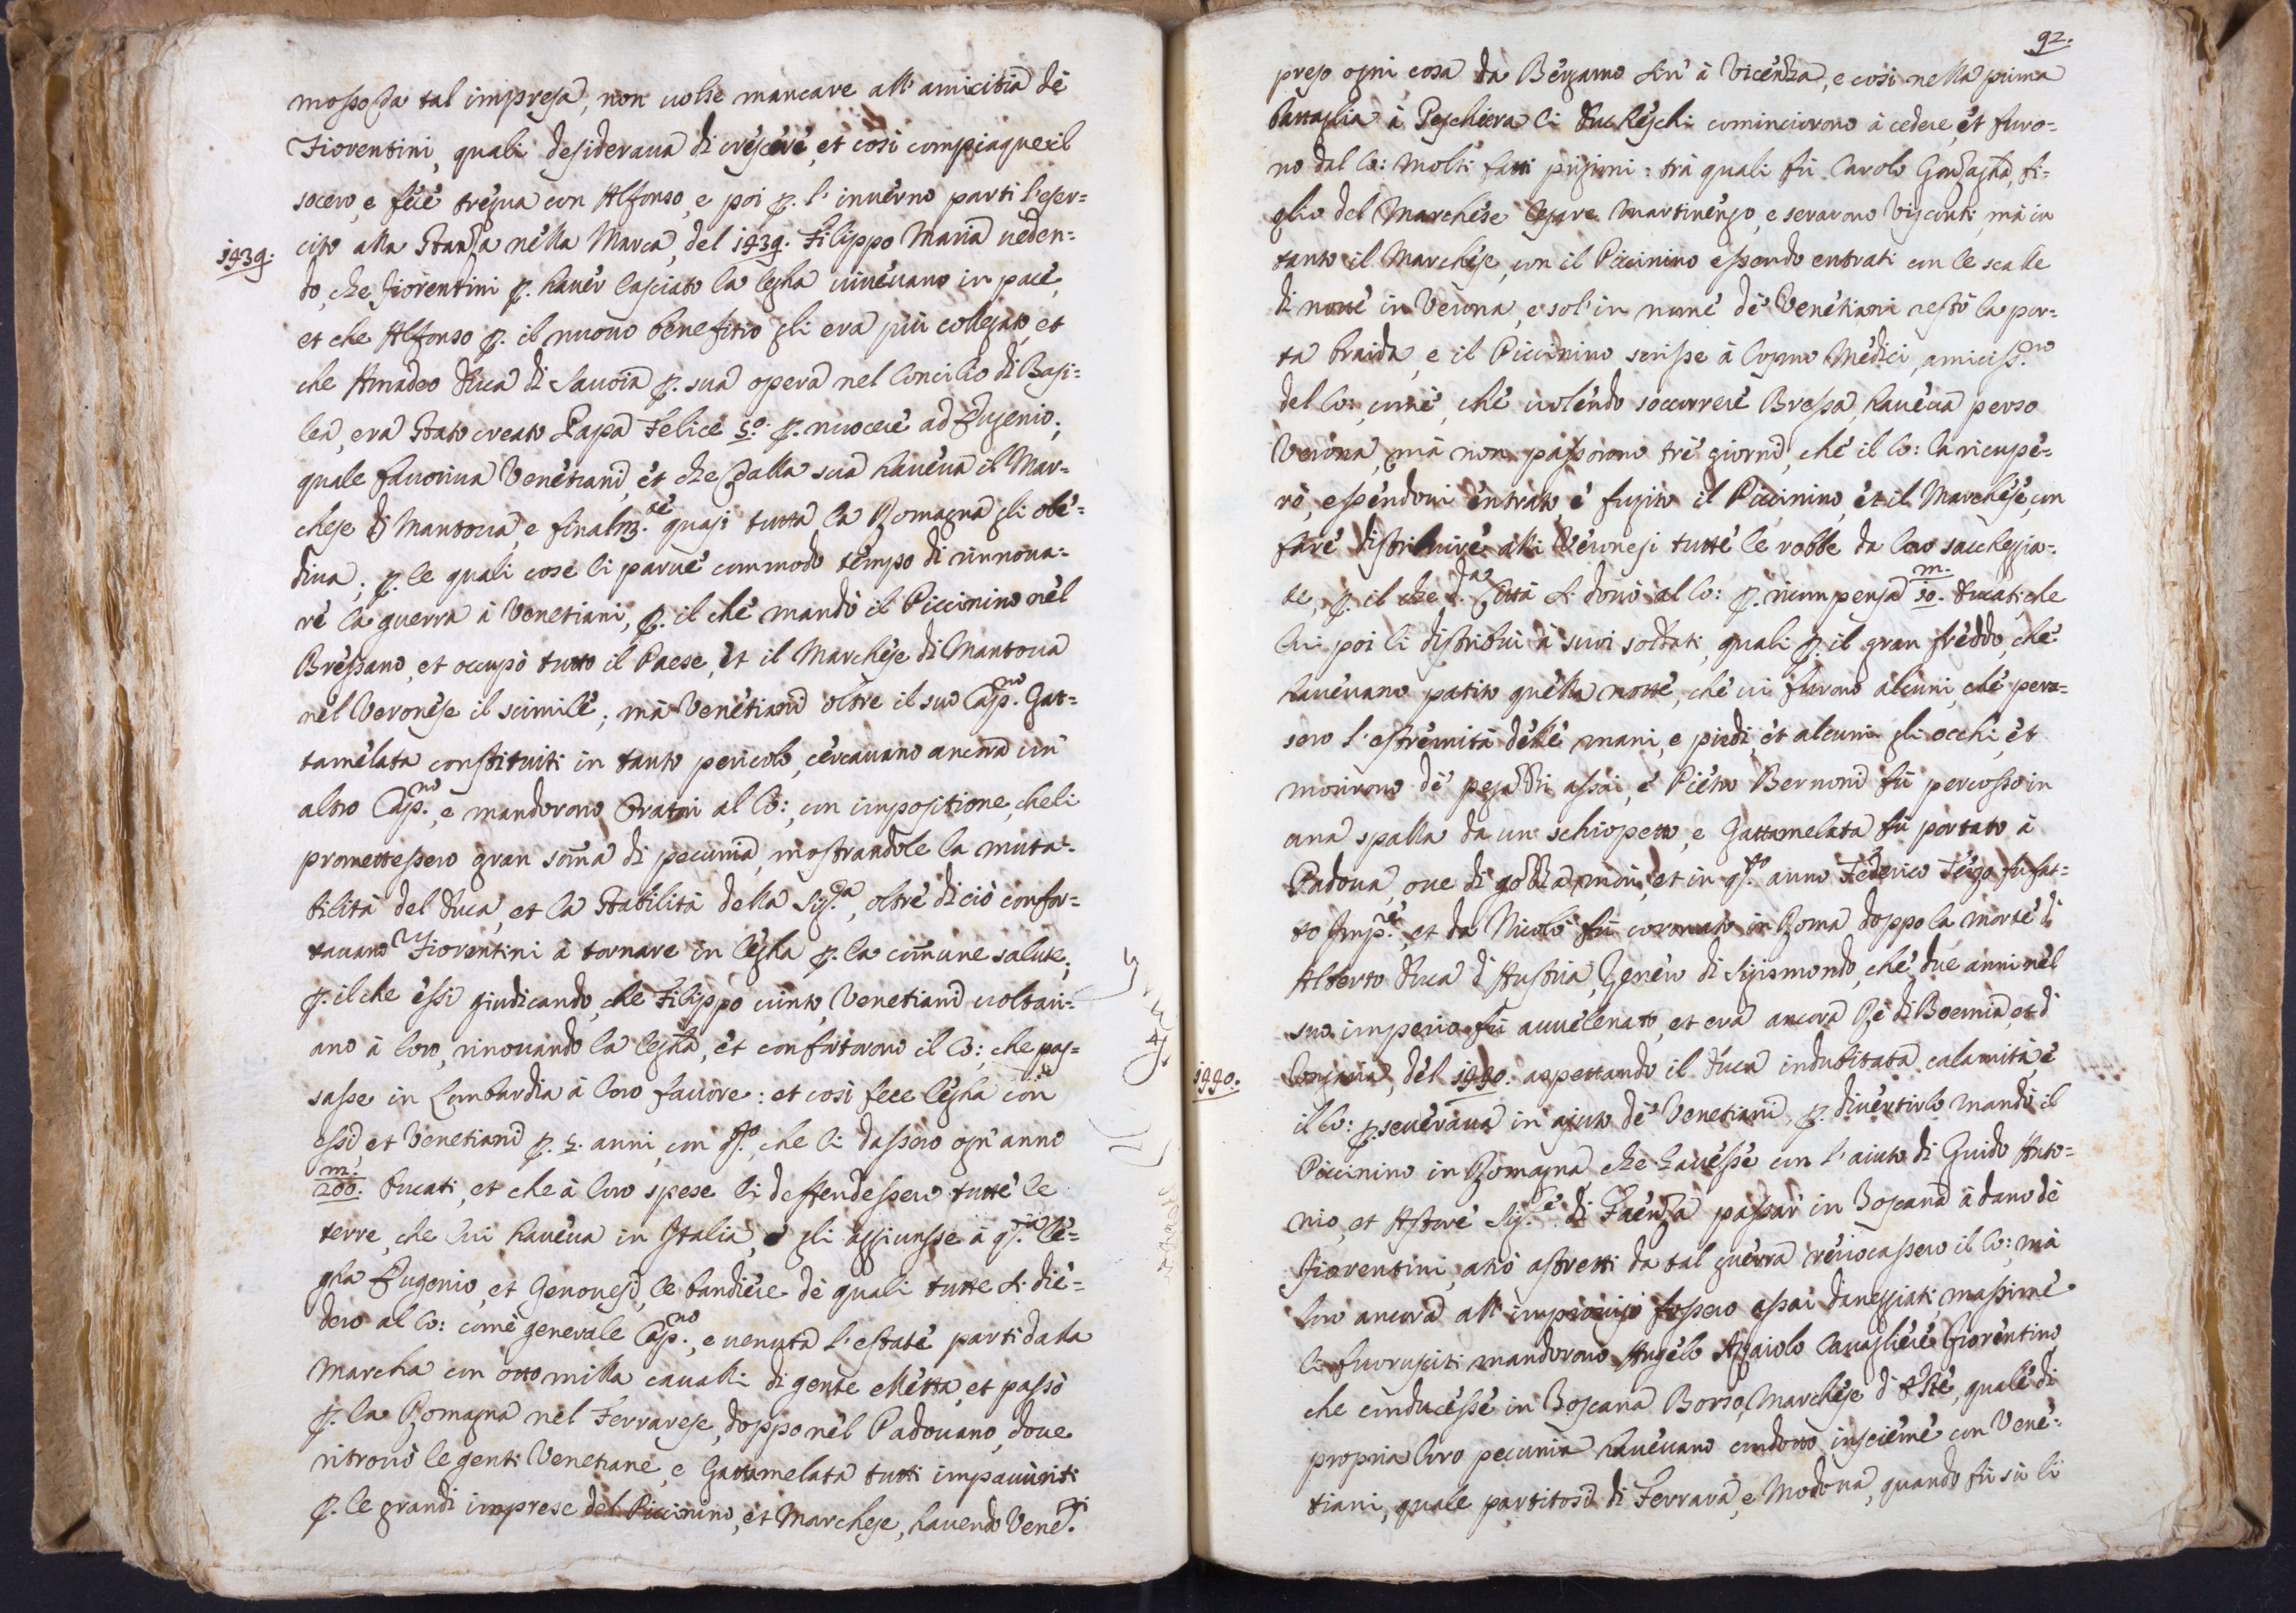 mosso da tal impresa, non uolse mancare all' amicitia dè
Fiorentini, quali desideraua di crescere, et così compiaque il
socero, e fece tregua con Alfonso, e poi p. l' inuerno partì l'eser=
1439.
cito alla Stanza nella Marca, del 1439. Filippo Maria ueden=
do, che fiorentini p. hauer lasciato la legha uiueuano in pace,
et che Alfonso p. il nuouo benefitio gli era più collegato, et
che Amadeo Duca di Sauoia p. sua opera nel Concilio di Basi=
lea, era Stato creato Papa Felice 5.º p. nuocere ad Eugenio;
quale fauoriua Venetiani, et che dalla sua haueua il Mar=
chese di Mantoua, e finalm.te quasi tutta la Romagna gli obe=
diua; p. le quali cose li parue commodo tempo di rinnoua=
re la guerra à Venetiani, p. il che mandò il Piccinino nel
Bressano, et occupò tutto il Paese, et il Marchese di Mantoua
nel Veronese il scimile; mà Venetiani oltre il suo Cap.no Gat=
tamelata constituiti in tanto pericolo, cercauano ancora un'
altro Cap.no, e mandorono Oratori al Co:, con impositione, che li
promettessero gran som̃a di pecunia, mostrandole la muta=
bilità del Duca, et la Stabilità della Sig.a, oltre di ciò confor=
tauano Fiorentini à tornare in legha p. la com̃une salute;
p. il che essi giudicando, che Filippo uinto, Venetiani uoltari=
ano à loro, rinouando la legha, et confortorono il Co:, che pas=
sasse in Lombardia à loro fauore: et così fece legha con
essi, et Venetiani p. 5. anni, con q.sto, che li dassero ogn' anno
m.
200. Ducati, et che à loro spese li deffendessero tutte le
terre, che lui haueua in Italia, e gli aggiunsse à q.sta le=
gha Eugenio, et Genouesi, le bandiere dè quali tutte si die=
dero al Co: come generale Cap.no, e uenuta l'estate partì dalla
Marcha con otto milla caualli di gente eletta, et passò
p. la Romagna nel Ferrarese, doppo nel Padouano, doue
ritrouò le genti Venetiane, e Gattamelata tutti impauuriti
p. le grandi imprese del Piccinino, et Marchese, hauendo Vene.ni
92.
preso ogni cosa da Bergamo sin' à Vicenza, e così nella prima
battaglia à Peschiera li Ducheschi cominciorono à cedere, et furo=
no dal Co: molti fatti prigioni: trà quali fù Carolo Gonzagha, fi=
glio del Marchese Cesare Martinengo, e serarono Visconti, mà in
tanto il Marchese, con il Piccinino essendo entrati con le scalle
di notte in Verona, e sol' in nome dè Venetiani restò la por=
ta braida, e il Piccinino scrisse à Cosmo Medici, amiciss.mo
del Co:, come, che uolendo soccorrere Bressa, haueua perso
Verona, mà non passorono trè giorni, che il Co: la ricupe=
rò, essendoui entrato, e fugito il Piccinino, et il Marchese, con
fare distribuire alli Veronesi tutte le robbe da loro saccheggia=
te, p. il che d.a Città si donò al Co: p. ricompensa m. 10. Ducati che
lui poi li distribuì à suoi soldati, quali p. il gran freddo, che
haueuano patito quella notte, che ui furono alcuni, che pers=
sero l'estremità delle mani, e piedi, et alcuni gli occhi, et
morirono dè pesatti assai, e Pietro Bernoni fù percosso in
una spalla da un schiopetto, e Gattamelata fù portato à
Padoua, oue di gobba morì, et in q.sto anno Federico Terzo fu fat=
to Imp.re, et da Nicolò fù coronato in Roma doppo la morte di
Alberto Duca d'Austria, Genero di Sigismondo, che due anni nel
suo imperio fù auuelenato, et era ancora Rè di Boemia, et d'
1440.
Ongaria, del 1440. aspettando il Duca indubitata calamità, e
il Co: p.seueraua in aiuto dè Venetiani, p. diuertirlo mandò il
Piccinino in Romagna che hauesse con l'aiuto di Guido Anto=
nio, et Astore Sig.re di Faenza passar in Toscana à dano dè
fiorentini, aciò astretti da tal guerra reuocassero il Co:, mà
loro ancora all' improuiso fossero assai daneggiati, massime
li fuorusciti mandorono Angelo Accaiolo Caualiere fiorentino
che conducesse in Toscana Borso, Marchese d'Este, quale di
propria loro pecunia haueuano condotto insciëme con Vene=
tiani, quale partitosi di Ferrara, e Modona, quando fù sù li